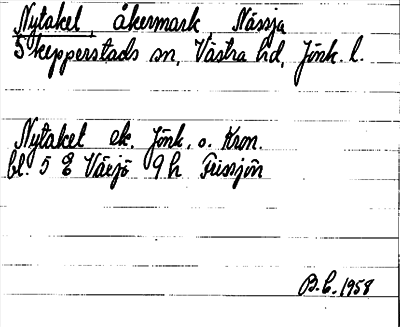 Nytaket, åkermark, Nässja
Skepperstads sn, Västra hd, Jönk. l.
Nytaket ek. Jönk. o. Kron.
bl. 5 E Växjö 9 h Frissjön
B.L. 1958